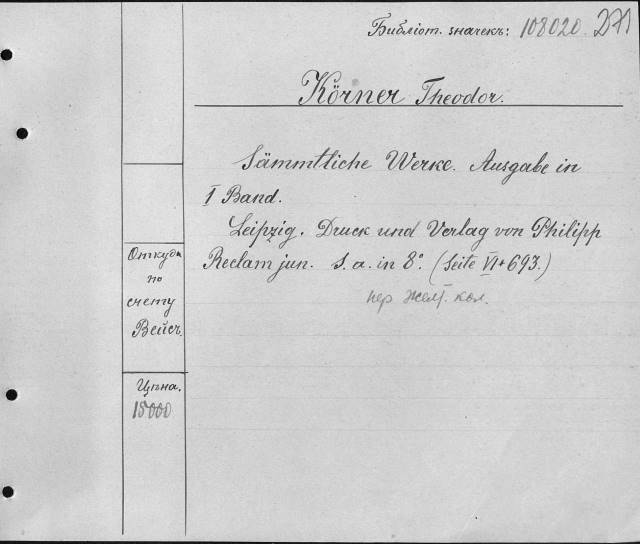 Библіот. значекъ: 108020. 271
Körner Theodor.
Sämmtliche Werke. Ausgabe in
I Band.
Leipzig. Druck und Verlag von Philipp
Reclam jun. S. a. in 8º. (Seite VI+693.)
пер желт. кол.
Откуда
по
счету
Вейсъ.
Цѣна.
15000